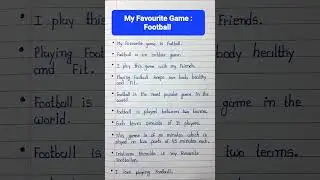 My Favourite Game :
Football
• My Favourite game is Football.
• Football is an outdoor game.
• I play this game with my Friends.
• Playing Football keeps our body healthy
and Fit.
• Football is the most popular game in the
world.
• Football is played between two teams.
• Each team consists of 11 players.
• This game is of 90 minutes which is
played in two parts of 45 minutes each.
• Cristiano Ronaldo is my Favourite
Footballer.
• I love playing Football.
• I play this
Friends.
• Playing
body healthy
and Fit.
• Football is
game in
the world.
• Football is